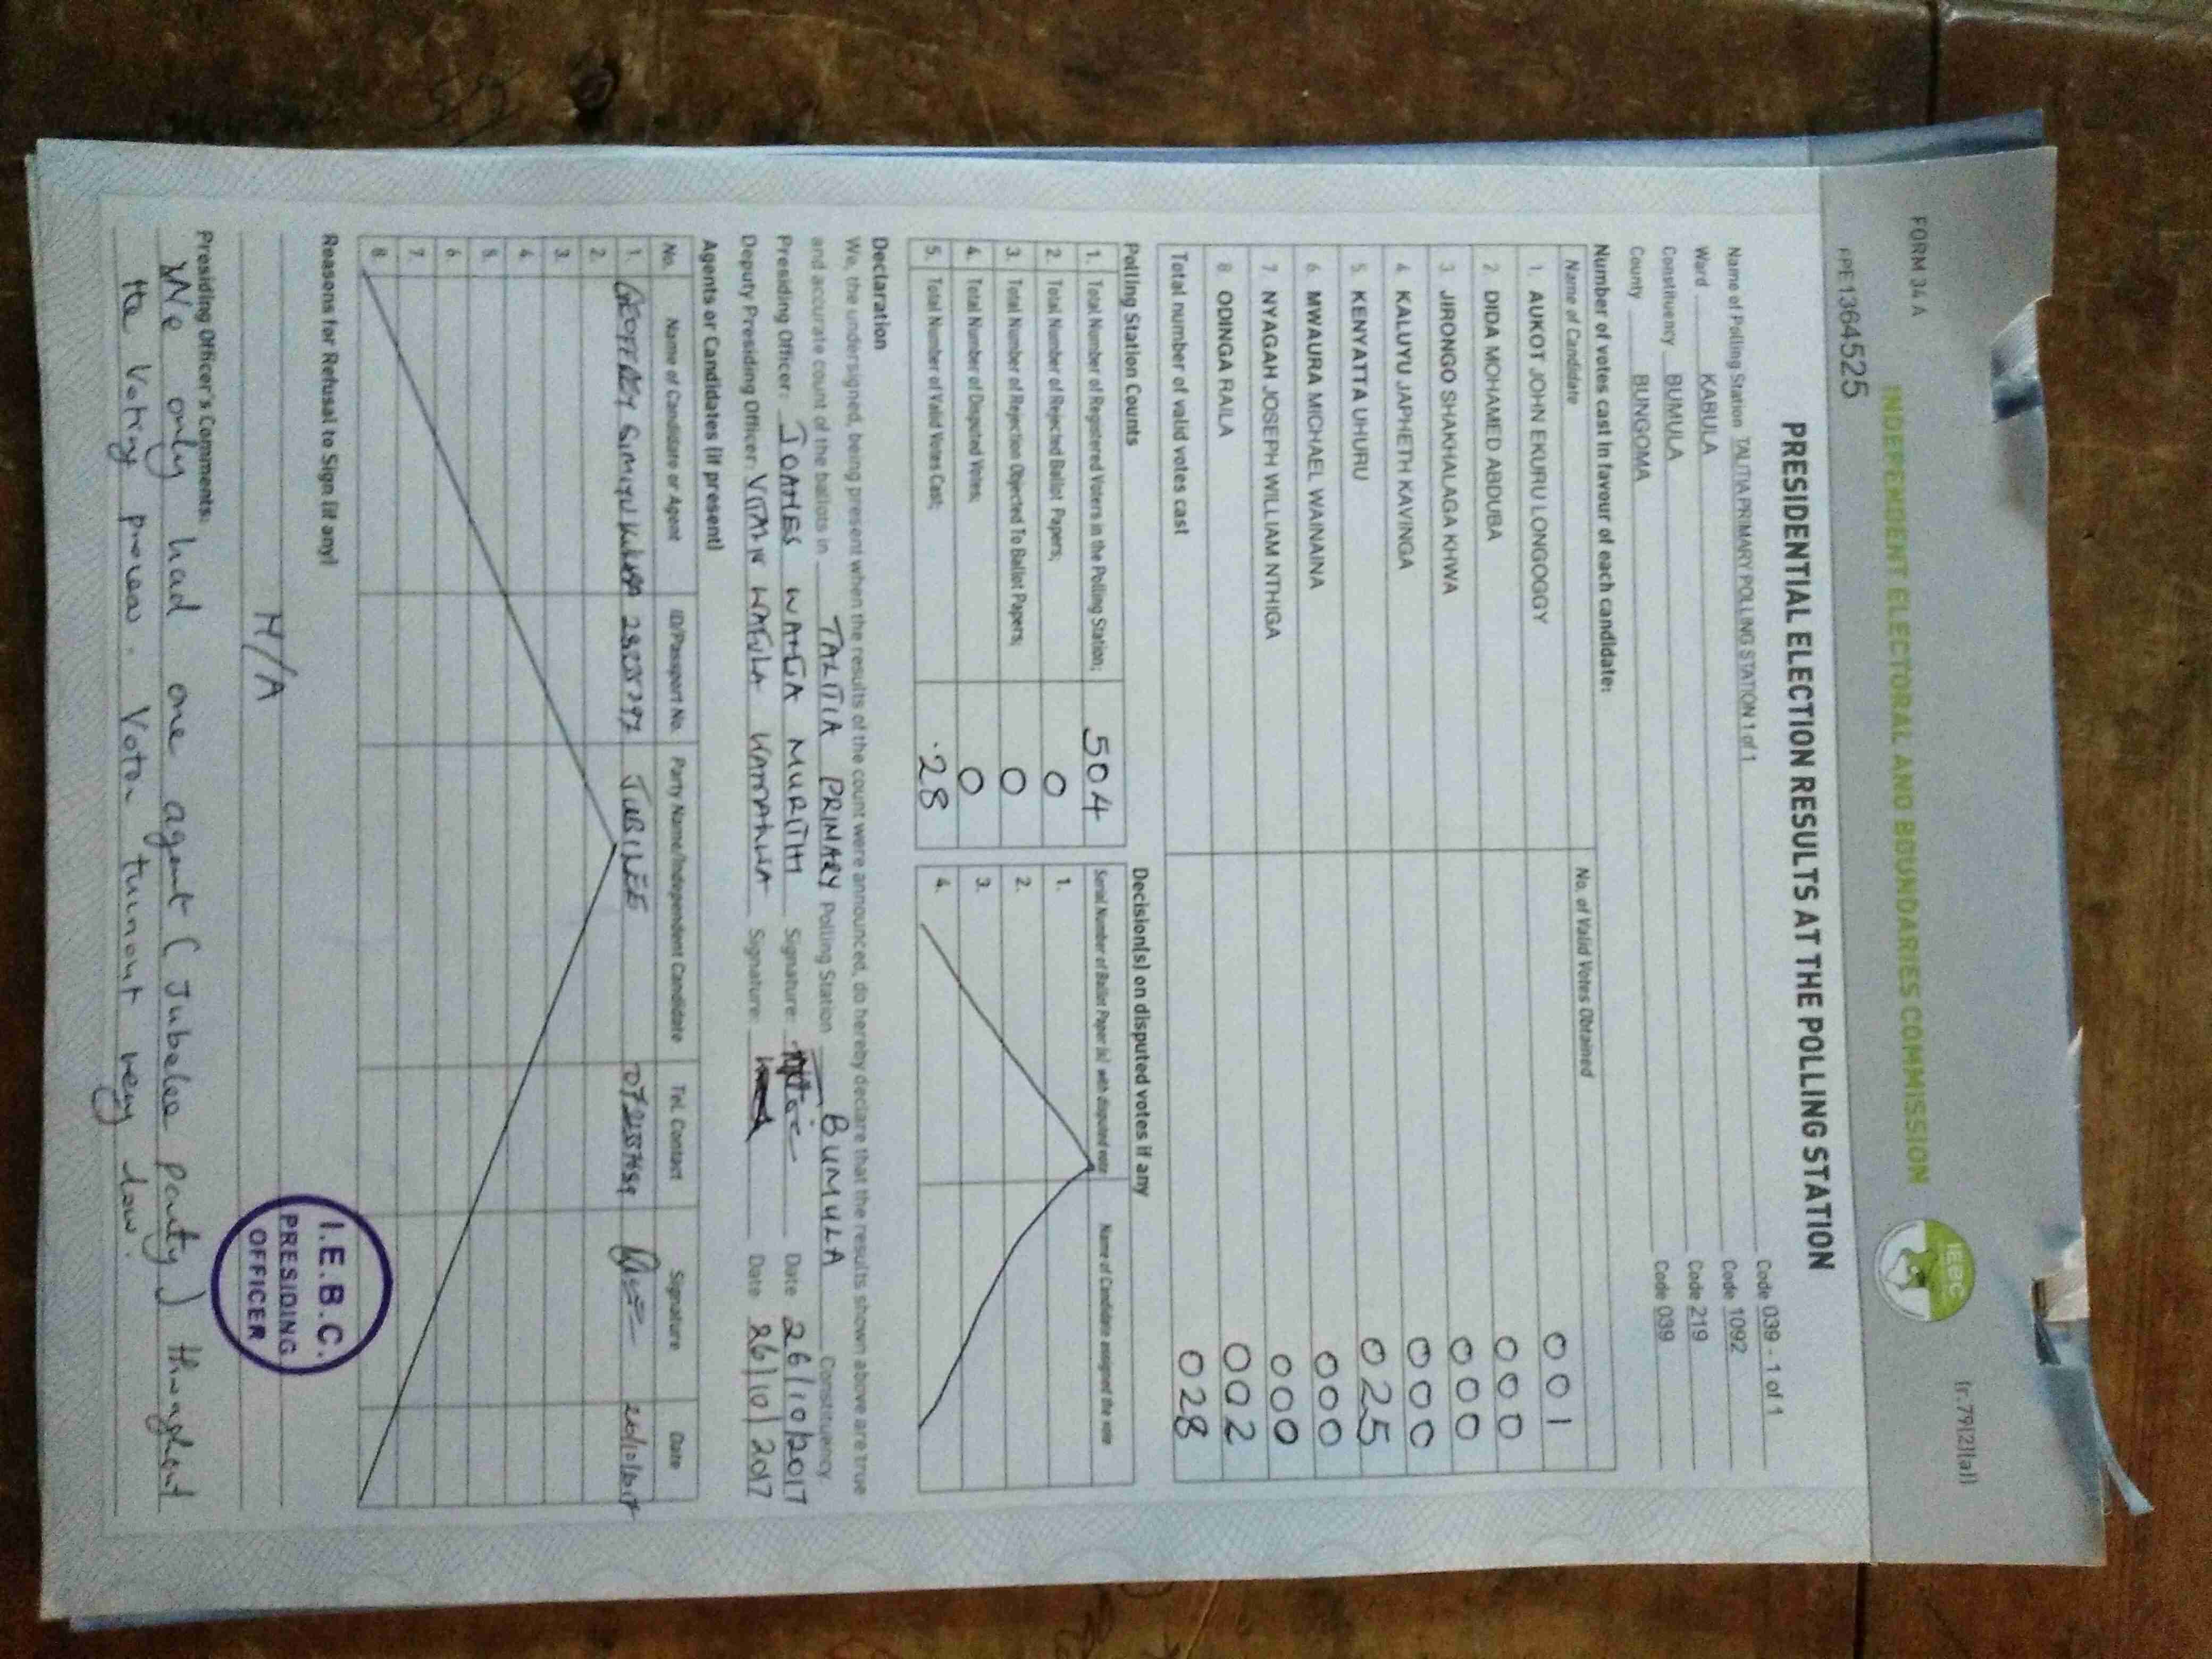 FORM 34 A
(r.79(2)(a))
INDEPENDENT ELECTORAL AND BOUNDARIES COMMISSION
IEBC
PE1364525
PRESIDENTIAL ELECTION RESULTS AT THE POLLING STATION
Name of Polling Station TALITIA PRIMARY POLLING STATION 1 of 1 Code 039 - 1 of 1
Ward KABULA Code 1092
Constituency BUMULA Code 219
County BUNGOMA Code 039
Number of votes cast in favour of each candidate:
Name of Candidate No. of Valid Votes Obtained
1. AUKOT JOHN EKURU LONGOGGY 001
2 DIDA MOHAMED ABDUBA 000
3 JIRONGO SHAKHALAGA KHWA 000
4 KALUYU JAPHETH KAVINGA 000
5 KENYATTA UHURU 025
6 MWAURA MICHAEL WAINAINA 000
7 NYAGAH JOSEPH WILLIAM NTHIGA 000
8 ODINGA RAILA 002
Total number of valid votes cast 028
Polling Station Counts
1. Total Number of Registered Voters in the Polling Station; 504
2 Total Number of Rejected Ballot Papers; 0
3. Total Number of Rejection Objected To Ballot Papers; 0
4. Total Number of Disputed Votes; 0
5. Total Number of Valid Votes Cast; 28
Decision(s) on disputed votes if any
Serial Number of Ballot Paper (s) with disputed vote Name of Candidate assigned the vote
1.
2.
3.
4.
Declaration
We, the undersigned, being present when the results of the count were announced, do hereby declare that the results shown above are true
and accurate count of the ballots in TALITIA PRIMARY Polling Station BUMULA Constituency
Presiding Officer: JOANES WANGA MURITHI Signature: Date 26/10/2017
Deputy Presiding Officer: WAFULA Signature: Date 26/10/2017
Agents or Candidates (if present)
No. Name of Candidate or Agent ID/Passport No. Party Name/Independent Candidate Tel. Contact Signature Date
1. GEOFFREY SIMIYU JUBILEE 26/10/2017
2.
3.
4
5.
6.
7.
8.
Reasons for Refusal to Sign (if any)
N/A
I.E.B.C.
PRESIDING
OFFICER
Presiding Officer's Comments:
We only had one agent (Jubelee party) throughout
the Voting process. Voter turnout very low.